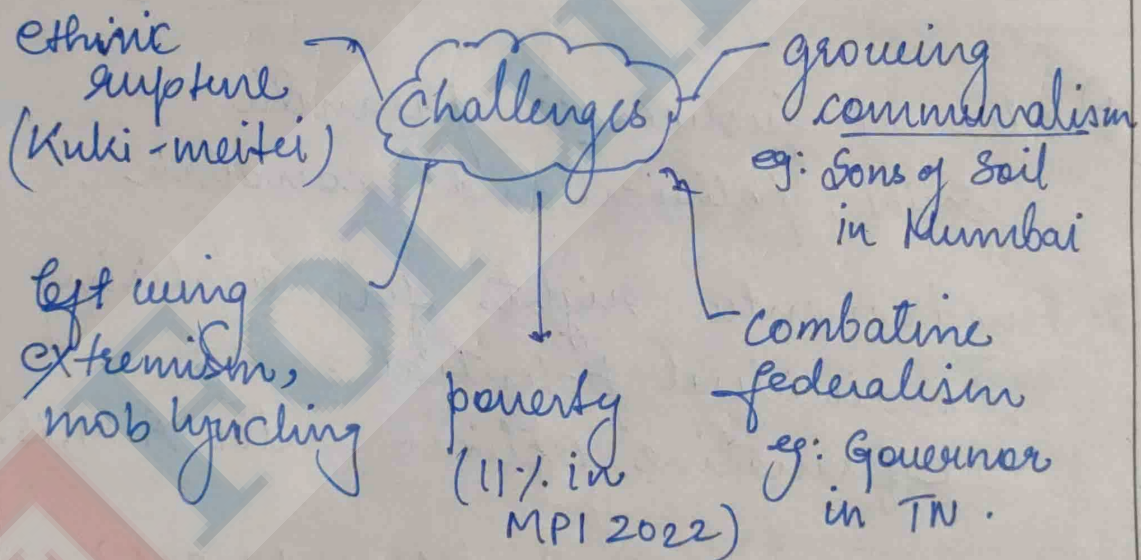 ethinic
rupture
(Kuki-meitei)
Challenges
growing
communalism
eg: Sons of Soil
in Mumbai
left wing
extremism,
mob lynching
poverty
(11% in
MPI 2022)
combative
federalism
eg: Governor
in TN.